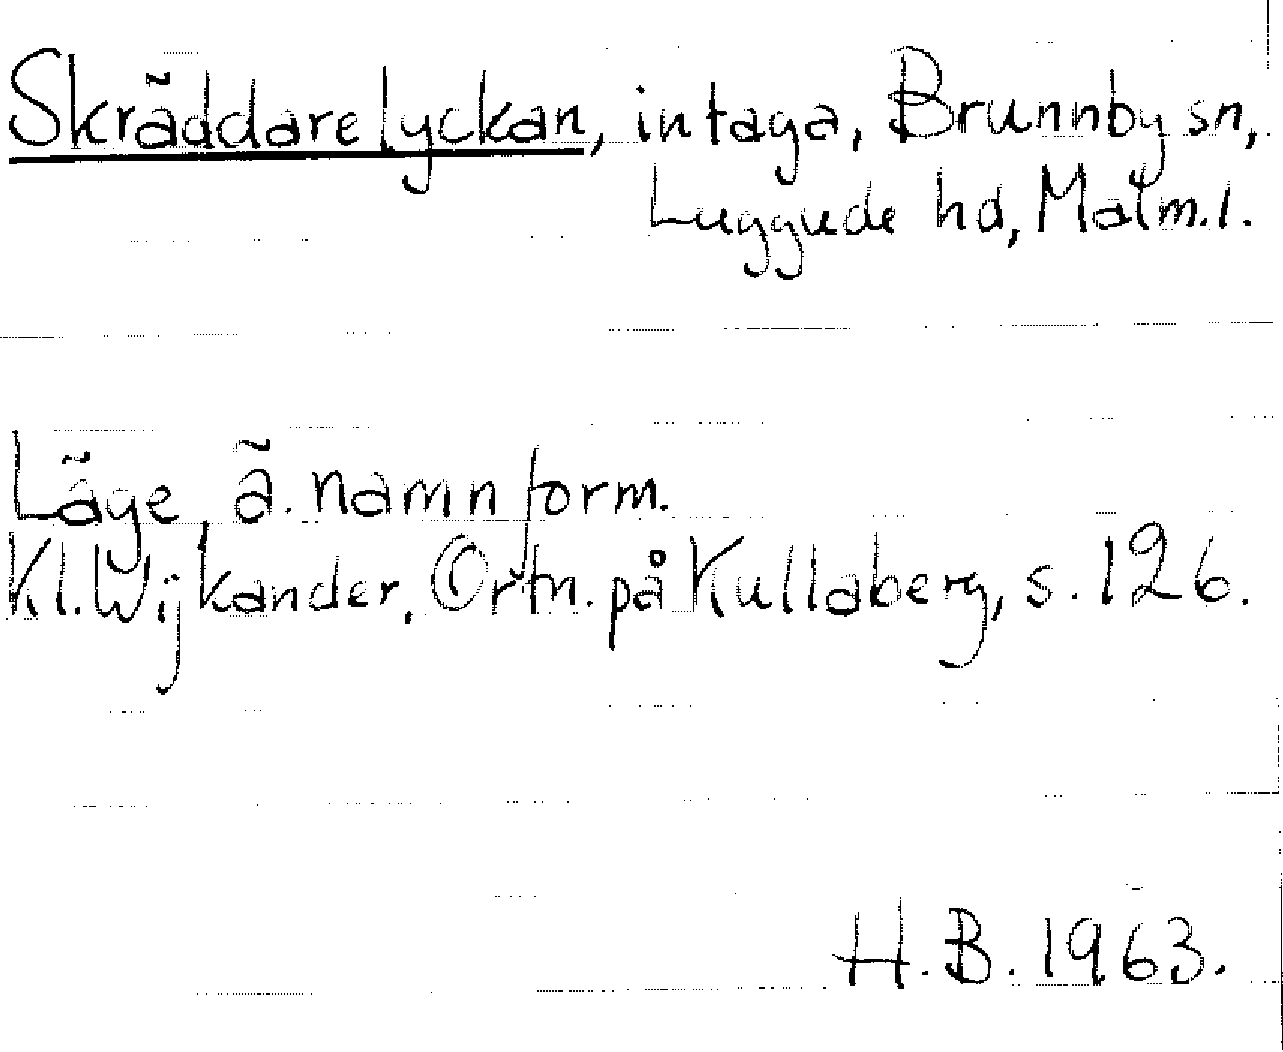 Skräddarelyckan, intaga, Brunnby sn,
Luggude hd, Malm.l.
Läge, ä. namnform.
Kl. Wijkander, Ortn. på Kullaberg, s. 126.
H.B. 1963.